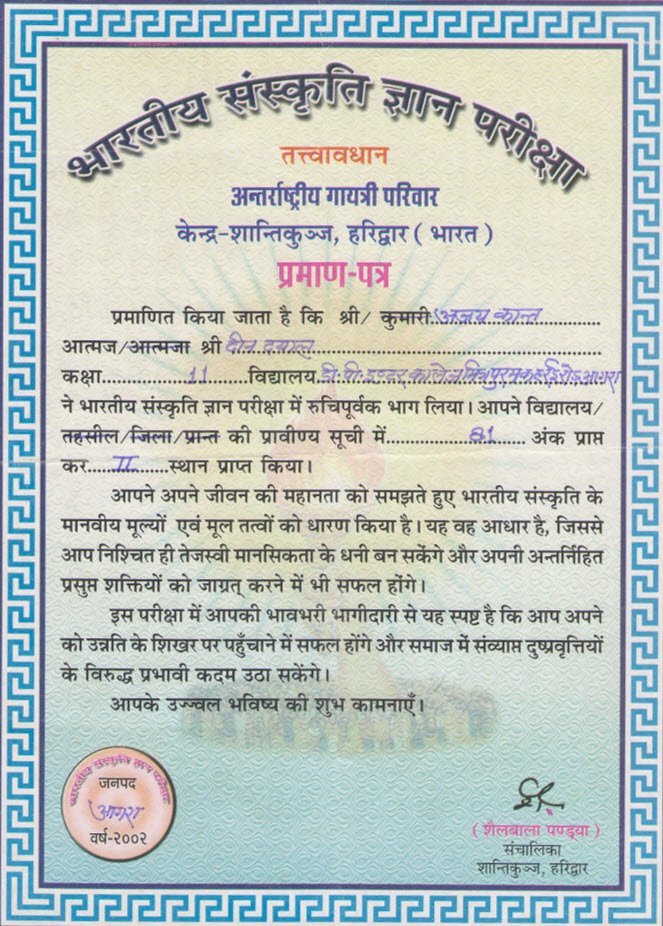 भारतीय संस्कृति ज्ञान परीक्षा
तत्त्वावधान
अन्तर्राष्ट्रीय गायत्री परिवार
केन्द्र-शान्तिकुञ्ज, हरिद्वार ( भारत )
प्रमाण-पत्र
प्रमाणित किया जाता है कि श्री/ कुमारी..अजय कान्त..........
आत्मज/आत्मजा श्री दीन दयाल..............................
कक्षा............11.........विद्यालय. डी. पी. इण्टर कालेज आगरा
ने भारतीय संस्कृति ज्ञान परीक्षा में रुचिपूर्वक भाग लिया। आपने विद्यालय/
तहसील/जिला/प्रान्त की प्रावीण्य सूची में................81....... अंक प्राप्त
कर.....II......स्थान प्राप्त किया।
आपने अपने जीवन की महानता को समझते हुए भारतीय संस्कृति के
मानवीय मूल्यों एवं मूल तत्वों को धारण किया है। यह वह आधार है, जिससे
आप निश्चित ही तेजस्वी मानसिकता के धनी बन सकेंगे और अपनी अन्तर्निहित
प्रसुप्त शक्तियों को जाग्रत् करने में भी सफल होंगे।
इस परीक्षा में आपकी भावभरी भागीदारी से यह स्पष्ट है कि आप अपने
को उन्नति के शिखर पर पहुँचाने में सफल होंगे और समाज में संव्याप्त दुष्प्रवृत्तियों
के विरुद्ध प्रभावी कदम उठा सकेंगे।
आपके उज्ज्वल भविष्य की शुभ कामनाएँ।
जनपद
आगरा
वर्ष-२००२
( शैलबाला पण्ड्या )
संचालिका
शान्तिकुञ्ज, हरिद्वार